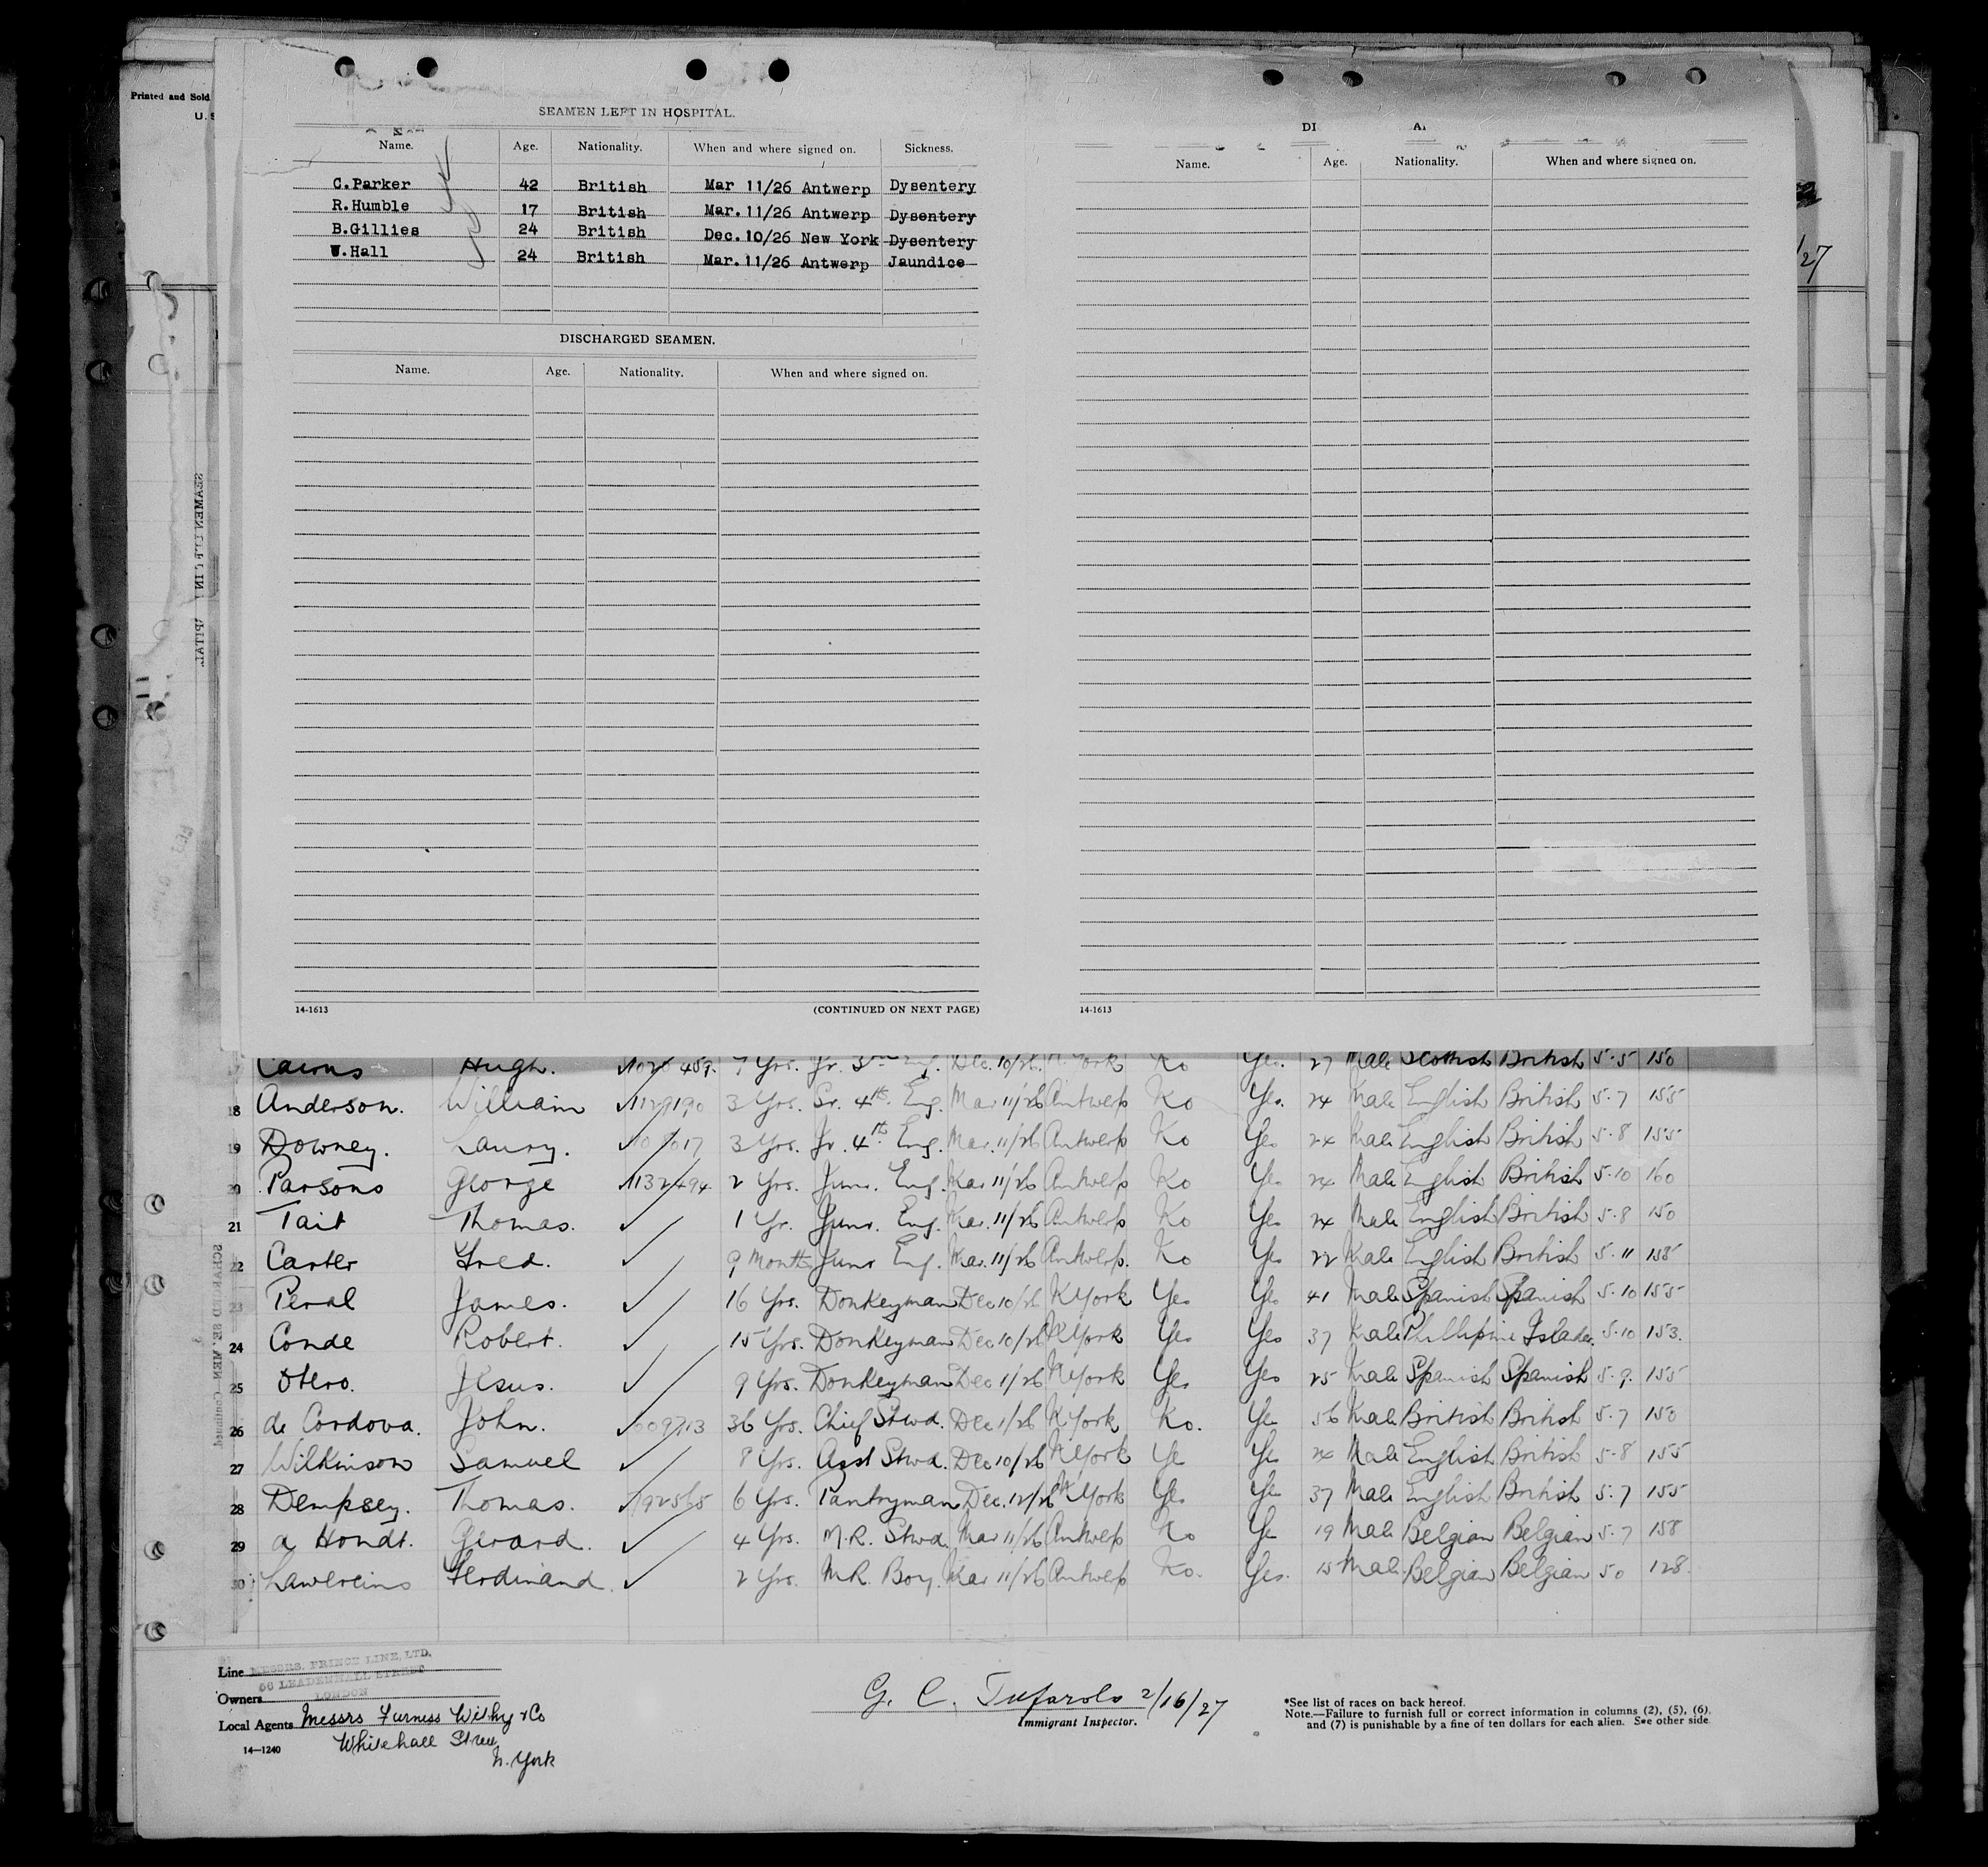 Printed and Sold
U. S
SEAMEN LEFT IN HOSPITAL.
Name. Age. Nationality. When and where signed on. Sickness.
C.Parker 42 British Mar 11/26 Antwerp Dysentery
R.Humble 17 British Mar.11/26 Antwerp Dysentery
B.Gillies 24 British Dec.10/26 New York Dysentery
W.Hall 24 British Mar.11/26 Antwerp Jaundice
DISCHARGED SEAMEN.
Name. Age. Nationality. When and where signed on.
14-1613 (CONTINUED ON NEXT PAGE)
DI
Name. Age. Nationality. When and where signed on.
14-1613
/27
Cairns Hugh. 459. 9 Yrs. Jr. 3rd Eng. Dec. 10/26. N. York No Yes. 27 Male Scottish British 5.5 150
18 Anderson. William 1129190 3 Yrs. Sr. 4th Eng. Mar 11/26 Antwerp No Yes. 24 Male English British 5.7 155
19 Downey. Laury. 3 Yrs. Jr. 4th Eng. Mar. 11/26 Antwerp No Yes 24 Male English British 5.8 155
20 Parsons George 1132494 2 Yrs. Junr. Eng. Mar 11/26 Antwerp No Yes 24 Male English British 5.10 160
21 Tait Thomas. 1 Yr. Junr. Eng. Mar. 11/26 Antwerp No Yes 24 Male English British 5.8 150
22 Carter Fred. 9 Months Junr Eng. Mar. 11/26 Antwerp. No Yes 22 Male English British 5.11 158
23 Peral James. 16 Yrs. Donkeyman Dec 10/26 N York Yes Yes 41 Male Spanish Spanish 5.10 155
24 Conde Robert. 15 Yrs. Donkeyman Dec 10/26 N York Yes Yes 37 Male Phillipine Islands. 5.10 153.
25 Otero. Jesus. 9 Yrs. Donkeyman Dec 1/26 N York Yes Yes 25 Male Spanish Spanish 5.9. 155
26 de Cordova. John. 609713 36 Yrs. Chief Stwd. Dec 1/26 N York No. Ye 56 Male British British 5.7 150
27 Wilkinson Samuel 8 Yrs. Asst Stwd. Dec 10/26 N York Ye Yes 24 Male English British 5.8 155
28 Dempsey. Thomas. 792565 6 Yrs. Pantryman Dec. 12/26 N York Yes Ye 37 Male English British 5.7 155
29 a Hondt. Gerard. 4 Yrs. M.R. Stwd. Mar 11/26 Antwerp No Ye 19 Male Belgian Belgian 5.7 158
30 Lawereins Ferdinand. 2 Yrs. M.R. Boy. Mar 11/26 Antwerp No. Yes. 15 Male Belgian Belgian 50 128.
Line MESSRS. PRINCE LINE, LTD.
56 LEADENHALL STREET
Owners LONDON
Local Agents Messrs Furness Withy & Co
14—1240 Whitehall Street
N. York
G. C. Tufarolo 2/16/27
Immigrant Inspector.
*See list of races on back hereof.
Note.—Failure to furnish full or correct information in columns (2), (5), (6),
and (7) is punishable by a fine of ten dollars for each alien. See other side